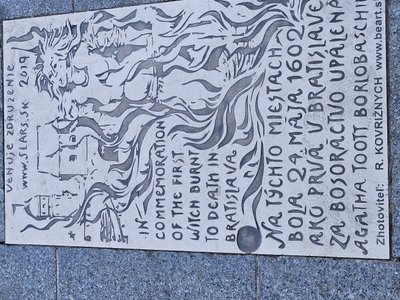 VENUJE ZDRUŽENIE
www.SLARS.SK 2019
IN
COMMEMORATION
OF THE FIRST
WITCH BURNT
TO DEATH IN
BRATISLAVA
NA TÝCHTO MIESTACH
BOLA 24. MÁJA 1602
AKO PRVÁ V BRATISLAVE
ZA BOSORÁCTVO UPÁLENÁ
AGATHA TOOTT BORLOBASCHIN
Zhotoviteľ: R. KOVRIŽNYCH www.beart.s